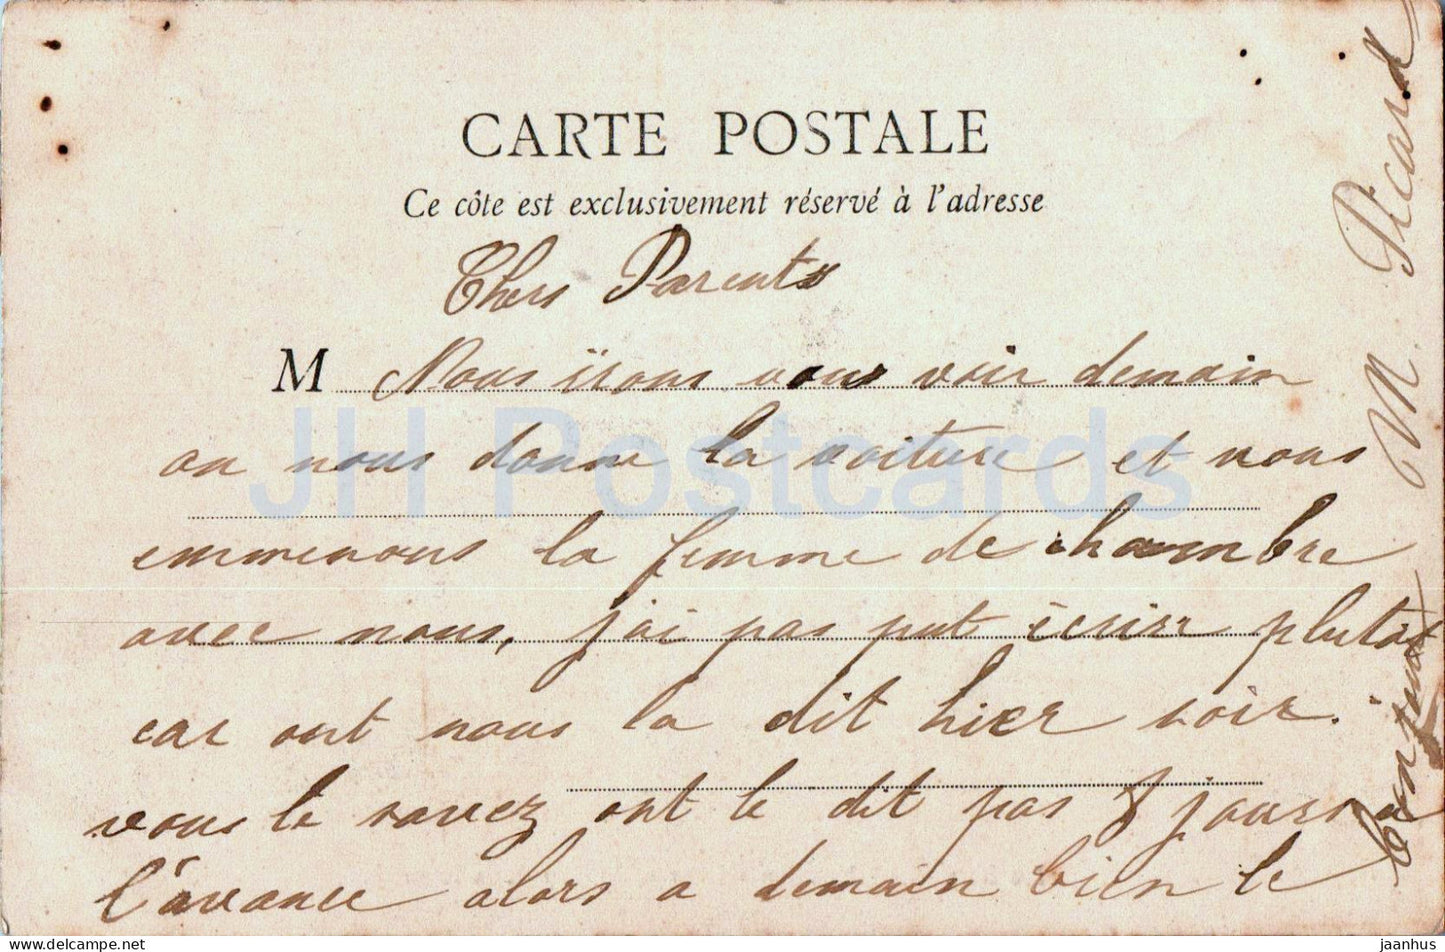 CARTE POSTALE
Ce côte est exclusivement réservé à l'adresse
Chers Parents
M Nous irons vous voir demain
on nous donne la voiture et nous
emmenons la femme de chambre
avec nous, j'ai pas put écrire plutôt
car ont nous la dit hier soir.
vous le savez ont le dit pas 8 jours
l'avance alors a demain bien le
bonjour
M. Picard
JH Postcards
delcampe.net
jaanhus